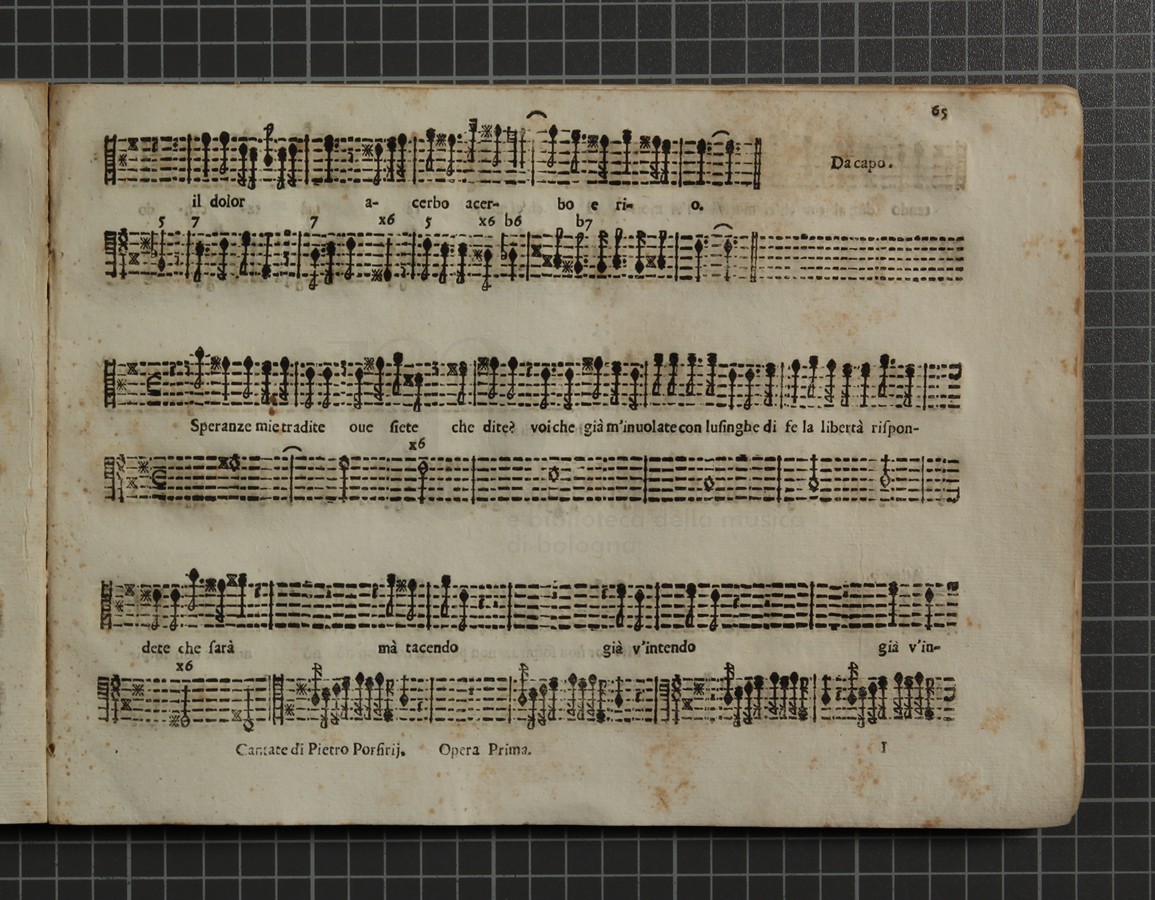 65
Da capo.
il dolor a- cerbo acer- bo e ri- o.
5 7 7 x6 5 x6 b6 b7
Speranze mie tradite oue siete che dite? voi che già m'inuolate con lusinghe di fe la libertà rispon-
x6
e biblioteca della musica
di bologna
dete che sarà mà tacendo già v'intendo già v'in-
x6
Cantate di Pietro Porfirij. Opera Prima. I